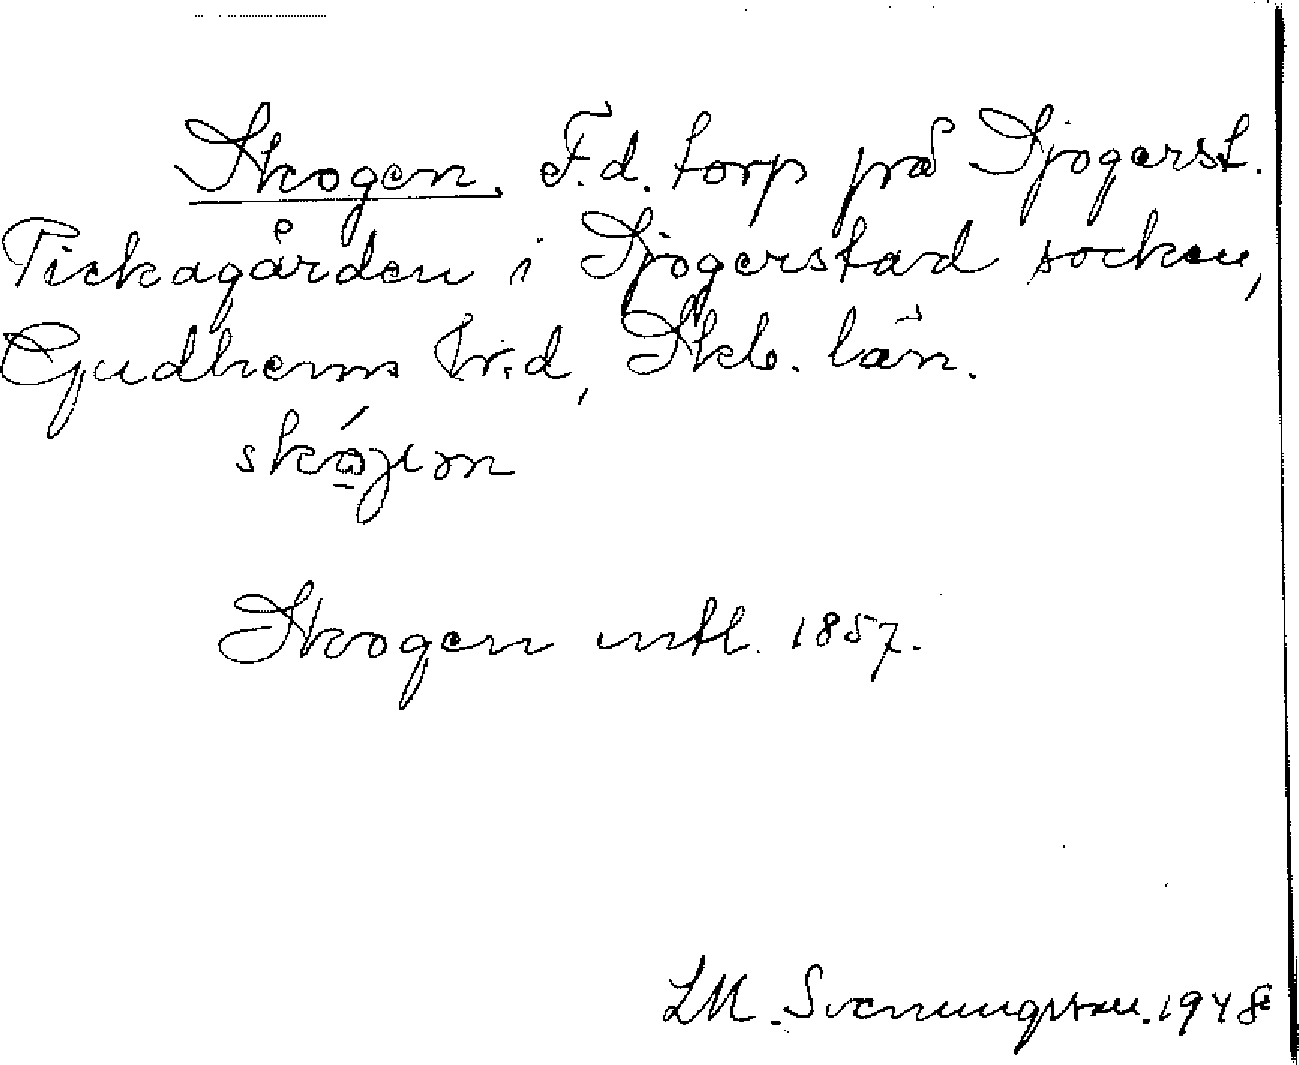 Skogen. F.d. torp på Sjogerst.
Tickagården i Sjogerstad socken,
Gudhems hrd, Skb. län.
Skogen intl. 1857.
LM. Svenungsson. 1948